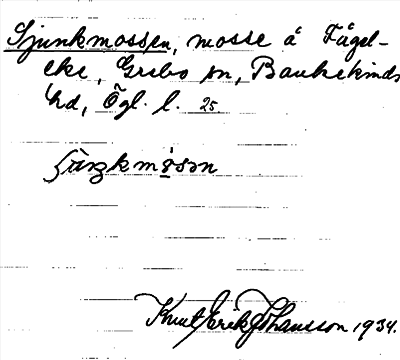 Sjunkmossen, mosse å Fågel-
eke, Grebo sn, Bankekinds
hd, Ögl. l. 25.
Knut Erik Johansson 1934.